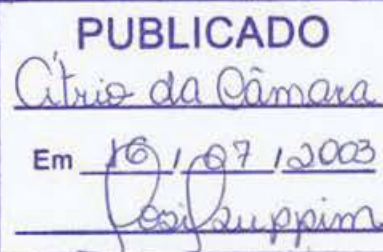 PUBLICADO
Átrio da Câmara
Em 16 / 07 / 2003